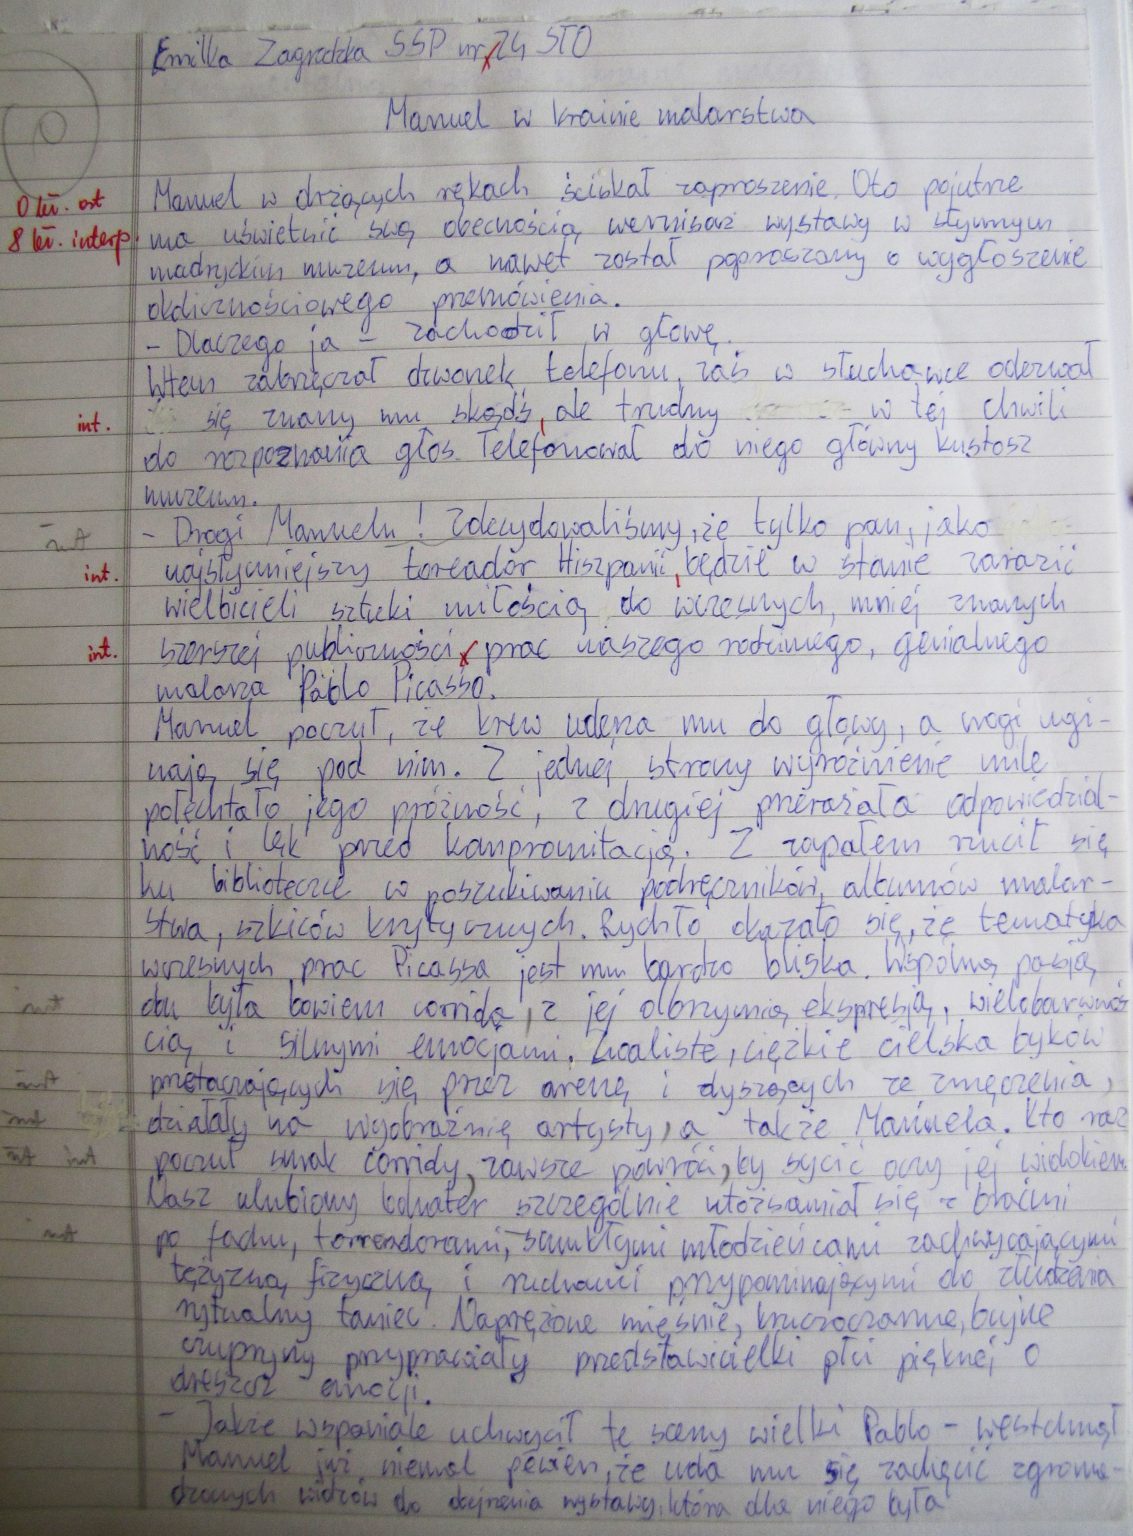 Emilka Zagrodzka SSP nr 24 STO
Manuel w krainie malarstwa
Manuel w drżących rękach ściskał zaproszenie. Oto pojutrze
0 bł. ort
8 bł. interp.
ma uświetnić swą obecnością wernisaż wystawy w słynnym
madryckim muzeum, a nawet został poproszony o wygłoszenie
okolicznościowego przemówienia.
- Dlaczego ja - zachodził w głowę.
Wtem zabrzęczał dzwonek telefonu, zaś w słuchawce odezwał
int.
się znany mu skądś, ale trudny w tej chwili
do rozpoznania głos. Telefonował do niego główny kustosz
muzeum.
int
- Drogi Manuelu! Zdecydowaliśmy, że tylko pan, jako
int.
najsłynniejszy toreador Hiszpanii, będzie w stanie zarazić
wielbicieli sztuki miłością do wczesnych, mniej znanych
int.
szerszej publiczności prac naszego rodzimego, genialnego
malarza Pablo Picasso.
Manuel poczuł, że krew uderza mu do głowy, a nogi ugi-
nają się pod nim. Z jednej strony wyróżnienie mile
połechtało jego próżność, z drugiej przerażała odpowiedzial-
ność i lęk przed kompromitacją. Z zapałem rzucił się
ku biblioteczce w poszukiwaniu podręczników, albumów malar-
stwa, szkiców krytycznych. Rychło okazało się, że tematyka
wczesnych prac Picassa jest mu bardzo bliska. Wspólną pasją
int
obu była bowiem corrida, z jej olbrzymią ekspresją, wielobarwnoś
cią i silnymi emocjami. Zwaliste, ciężkie cielska byków
int
przetaczających się przez arenę i dyszących ze zmęczenia,
int
działały na wyobraźnię artysty, a także Manuela. Kto raz
int int
poczuł smak corridy, zawsze powróci, by sycić oczy jej widokiem.
Nasz ulubiony bohater szczególnie utożsamiał się z braćmi
int
po fachu, torreadorami, smukłymi młodzieńcami zachwycającymi
tężyzną fizyczną i ruchami przypominającymi do złudzenia
rytualny taniec. Naprężone mięśnie, kruczoczarne, bujne
czupryny przyprawiały przedstawicielki płci pięknej o
dreszcz emocji.
- Jakże wspaniale uchwycił te sceny wielki Pablo - westchnął
Manuel już niemal pewien, że uda mu się zachęcić zgroma-
dzonych widzów do obejrzenia wystawy, która dla niego była